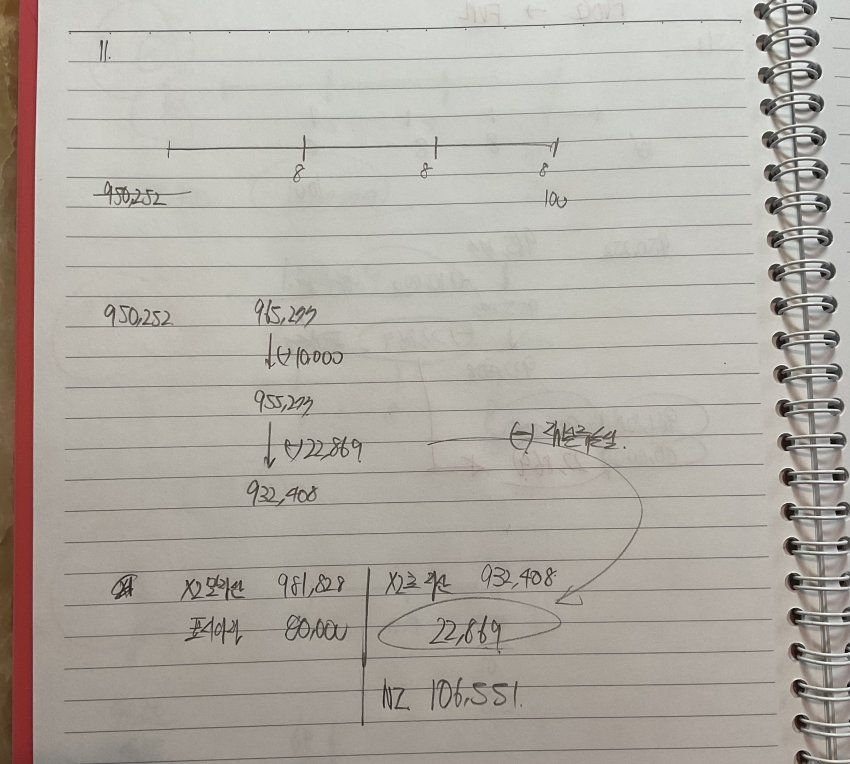 11.
8 8 8
950,252 100
950,252 965,277
↓ (-) 10,000
955,277
↓ (-) 22,869
932,408
X2말기산 981,828 X2초기산 932,408
표시이자 80,000 22,869
NI 106,551.